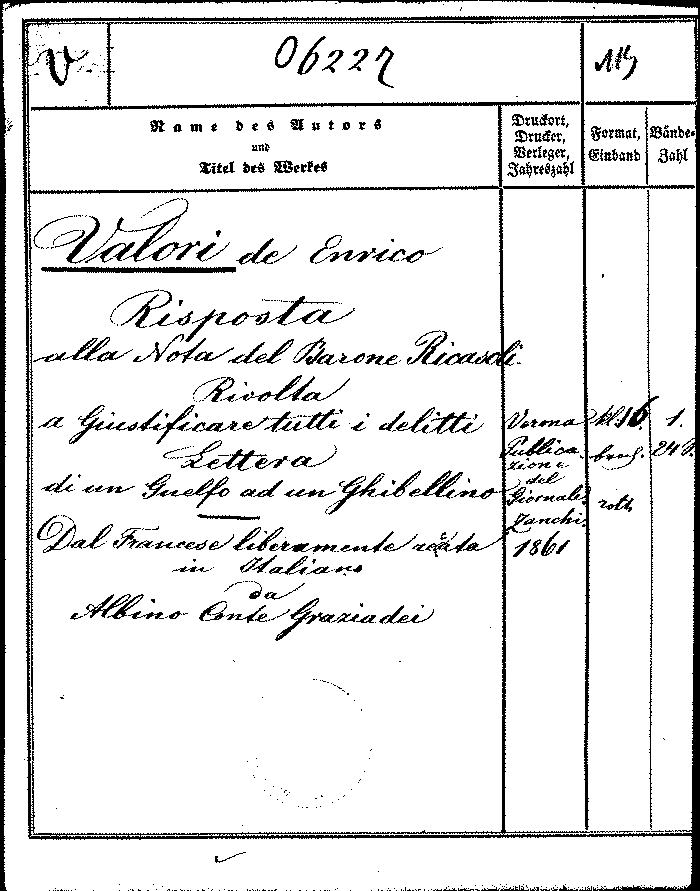 V
06227
Name des Autors
und
Titel des Werkes
Druckort,
Drucker,
Verleger,
Jahreszahl
Format,
Einband
Bände-
Zahl
Valori de Enrico
Risposta
alla Nota del Barone Ricasoli.
Rivolta
a Giustificare tutti i delitti
Lettera
di un Guelfo ad un Ghibellino
Dal Francese liberamente recata
in Italiano
da
Albino Conte Graziadei
Verona
Publica-
zione
del
Giornale
Zanchi.
1861
kl. 16
brosch.
roth
1.
24 S.